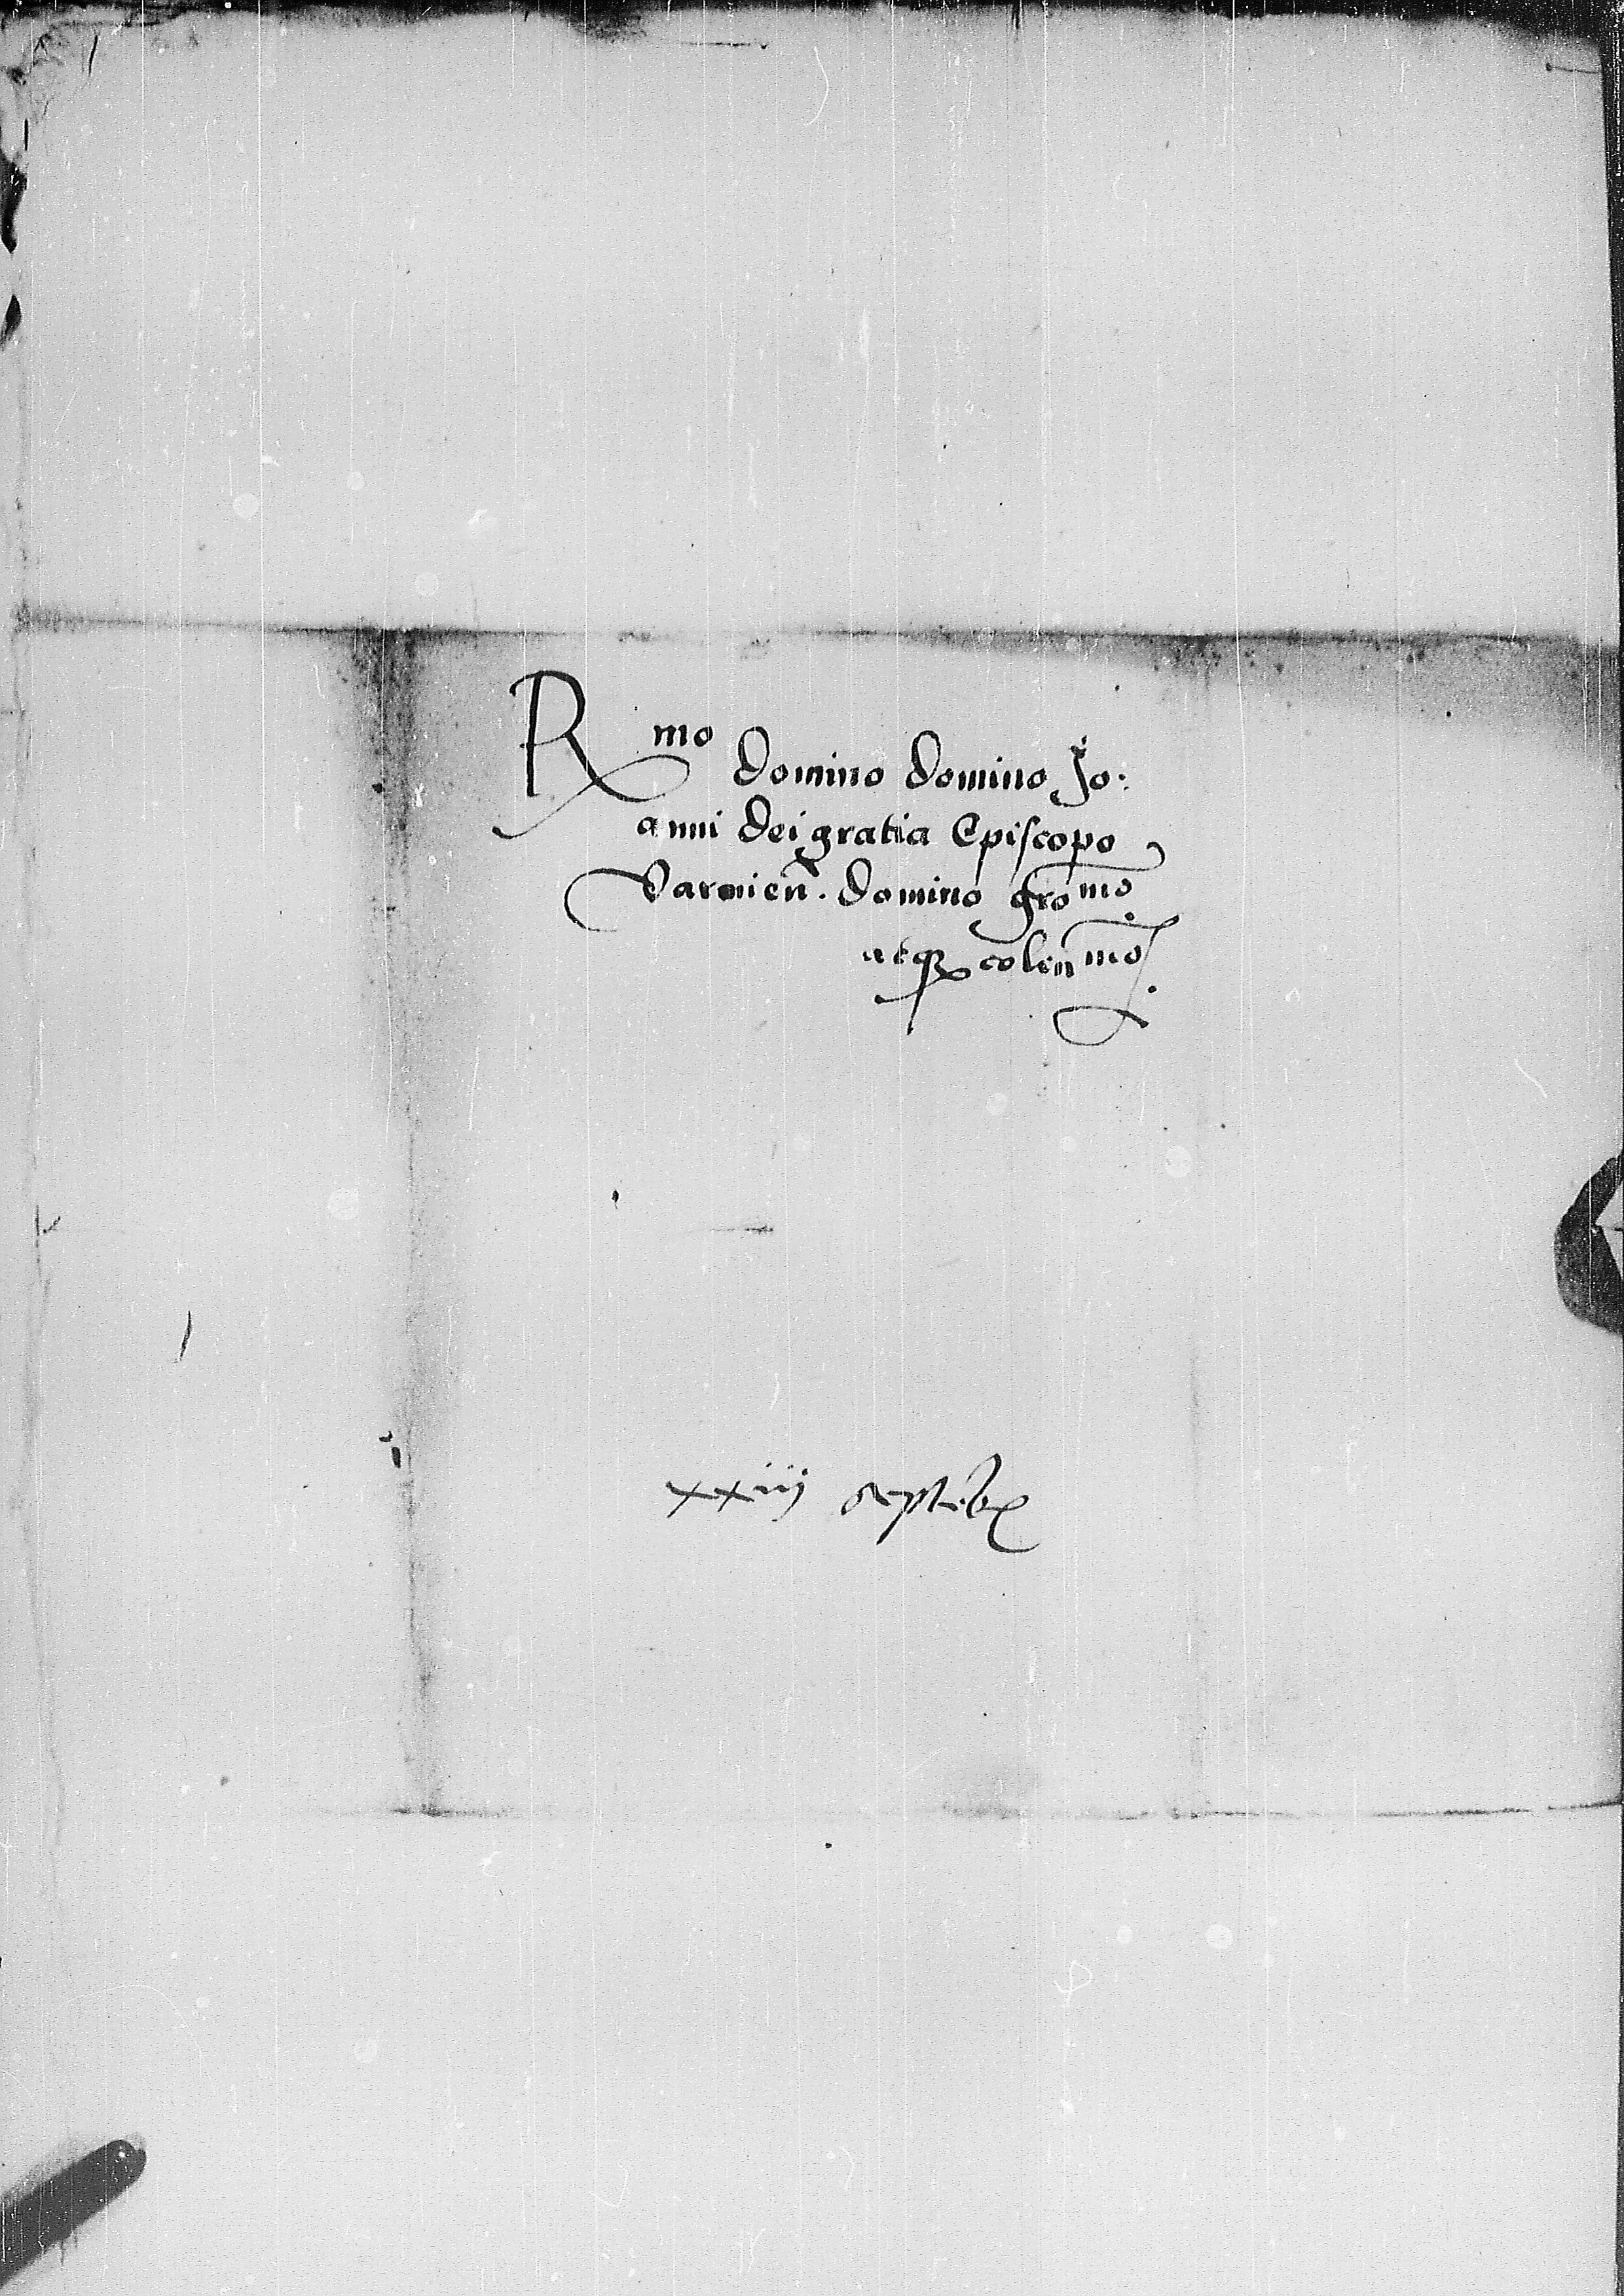 Rmo Domino Domino Jo:
anni Dei gratia Episcopo
Varmien̄. Domino gro mo
atq colen mo.
xxiij septēbr